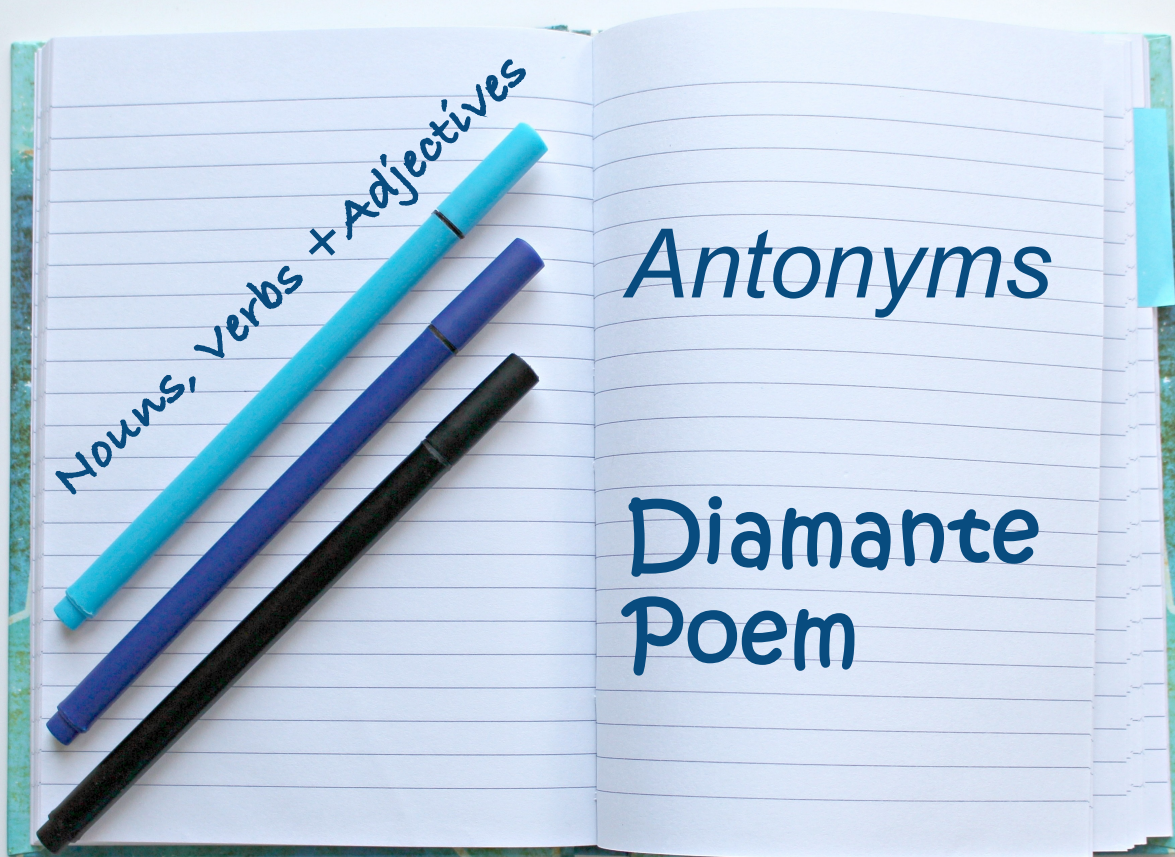 Nouns, verbs +Adjectives
Antonyms
Diamante
Poem